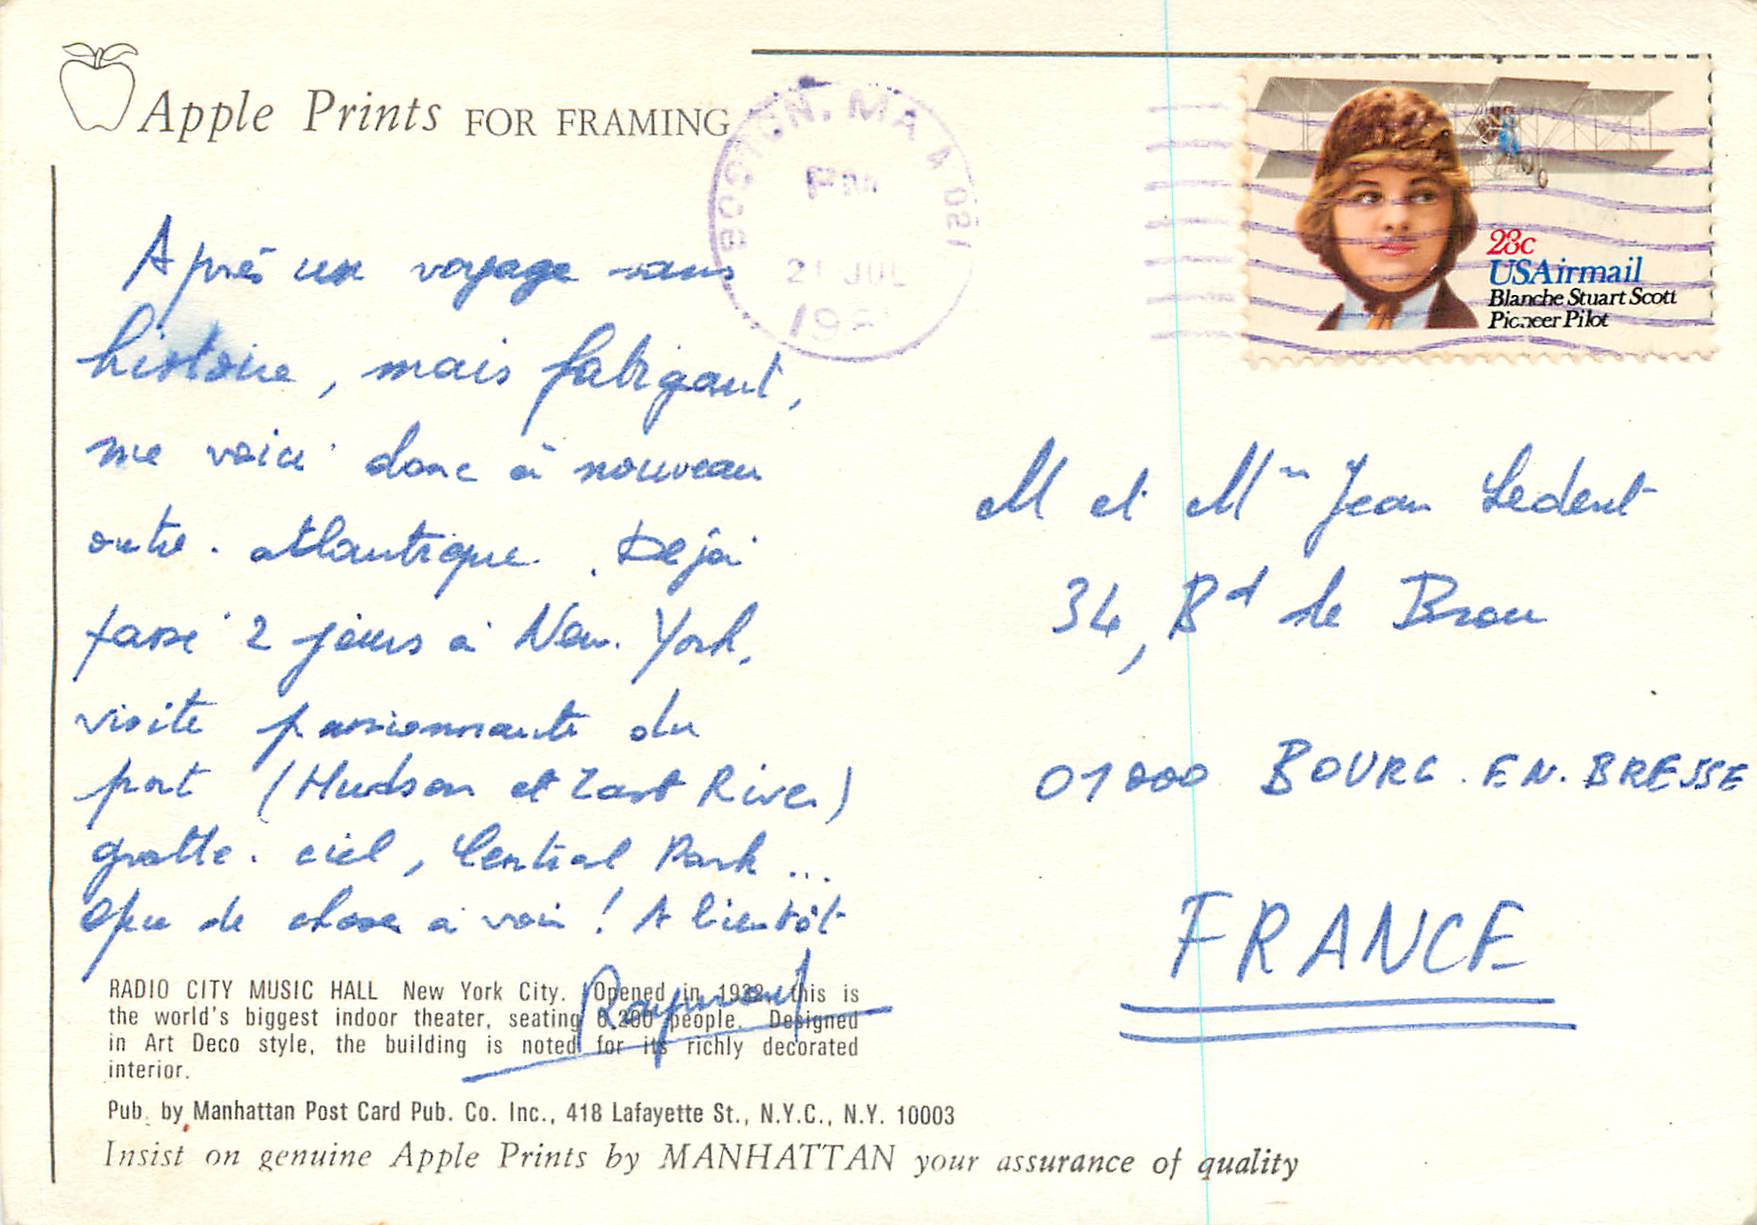 Apple Prints FOR FRAMING
BOSTON, MA 021
PM
21 JUL
19
28c
USAirmail
Blanche Stuart Scott
Pioneer Pilot
Après un voyage sans
histoire, mais fatigant,
me voici donc à nouveau
outre-atlantique. Déjà
passé 2 jours à New-York,
visite passionnante du
port (Hudson et East River)
gratte-ciel, Central Park...
que de choses à voir ! A bientôt
Raymond
M et Mme Jean Ledent
34, Bd de Brou
01000 BOURG-EN-BRESSE
FRANCE
RADIO CITY MUSIC HALL New York City. Opened in 1932 this is
the world's biggest indoor theater, seating 6,200 people. Designed
in Art Deco style, the building is noted for its richly decorated
interior.
Pub. by Manhattan Post Card Pub. Co. Inc., 418 Lafayette St., N.Y.C., N.Y. 10003
Insist on genuine Apple Prints by MANHATTAN your assurance of quality